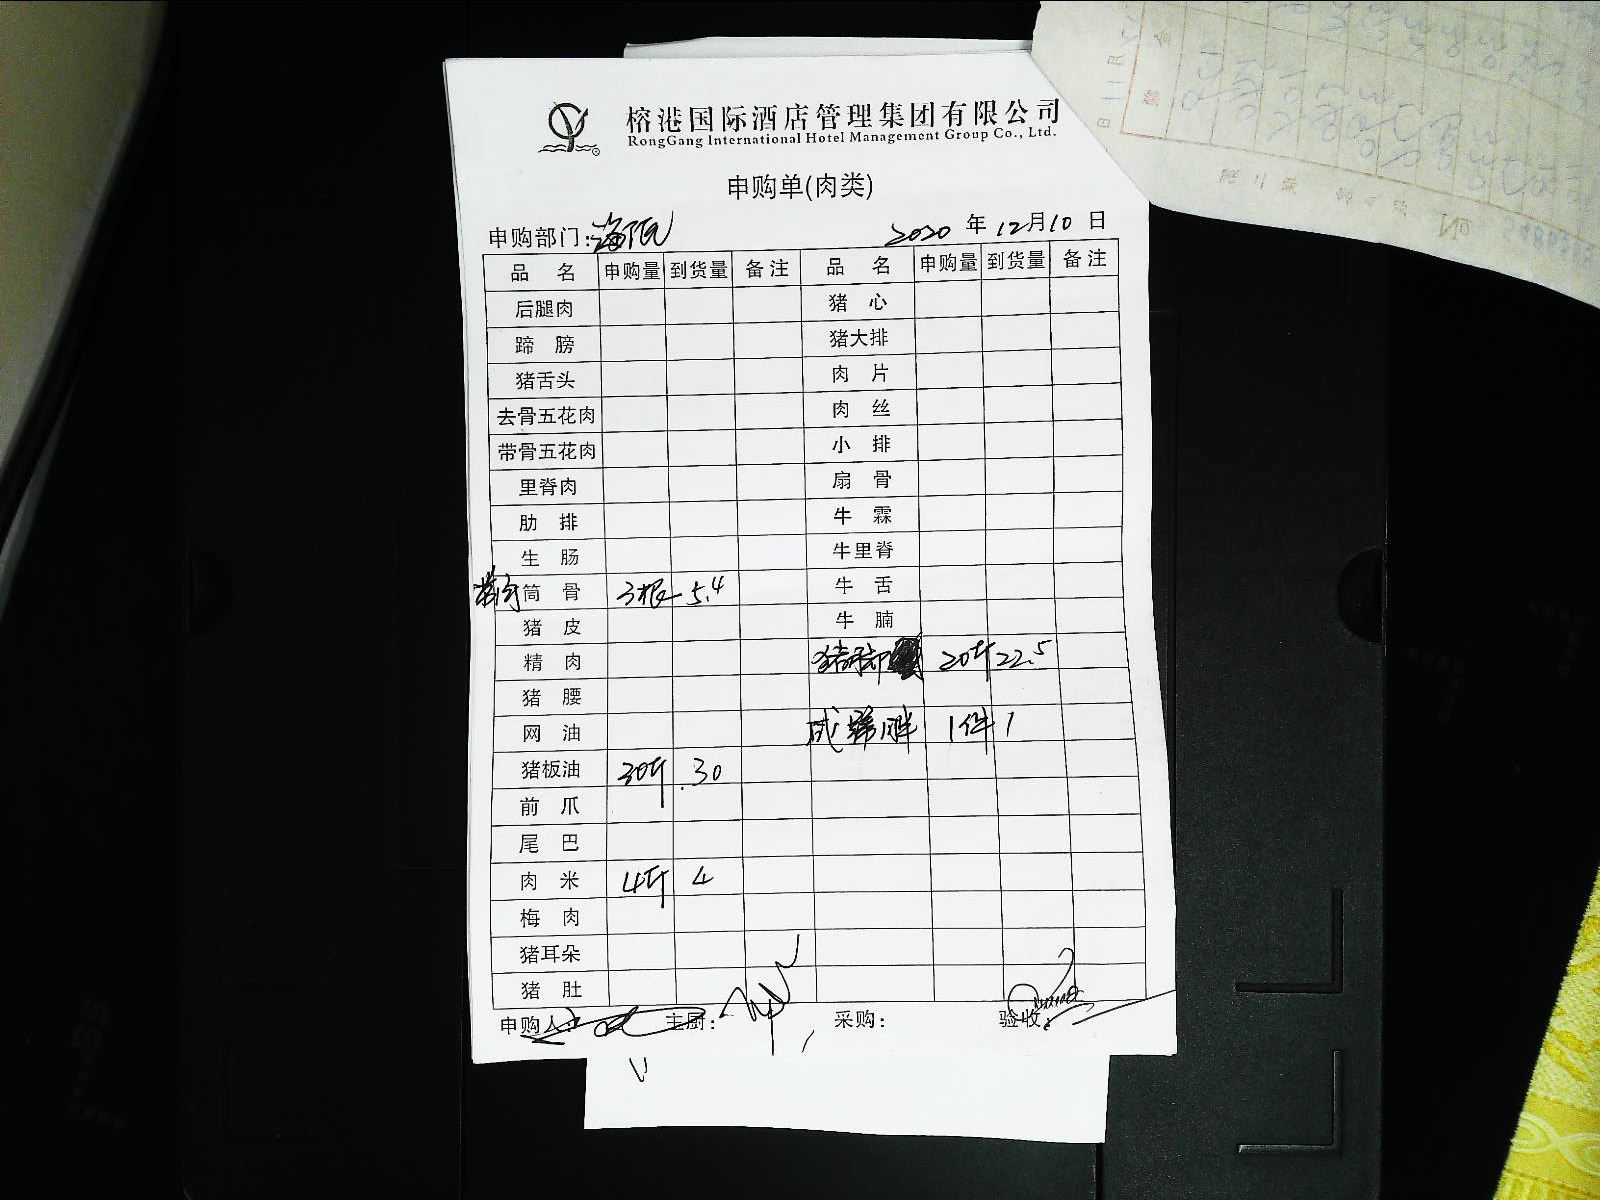 榕港国际酒店管理集团有限公司
RongGang International Hotel Management Group Co., Ltd.
申购单(肉类)
申购部门: 2020 年 12月10 日
品 名 申购量 到货量 备注 品 名 申购量 到货量 备注
后腿肉 猪 心
蹄 膀 猪大排
猪舌头 肉 片
去骨五花肉 肉 丝
带骨五花肉 小 排
里脊肉 扇 骨
肋 排 牛 霖
生 肠 牛里脊
筒 骨 3根 5.4 牛 舌
猪 皮 牛 腩
精 肉 猪脚 20斤 22.5
猪 腰
网 油 咸蹄胖 1件 1
猪板油 30斤 30
前 爪
尾 巴
肉 米 4斤 4
梅 肉
猪耳朵
猪 肚
申购人: 主厨: 采购: 验收:
No